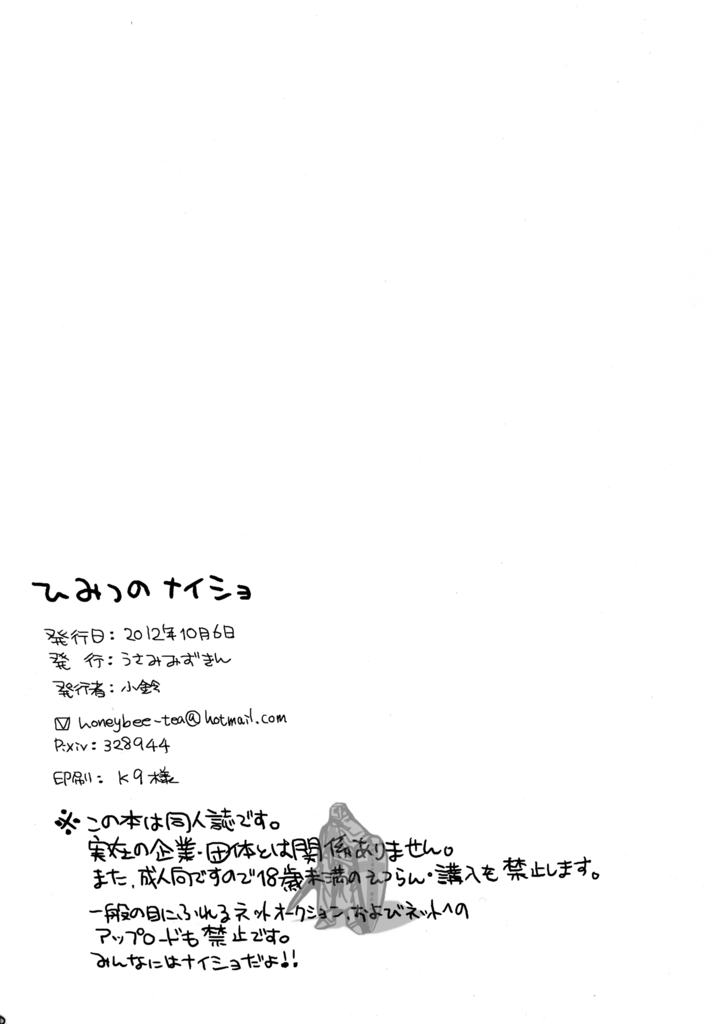 ひみつのナイショ
発行日：2012年10月6日
発　行：うさみみずきん
発行者：小鈴
honeybee-tea@hotmail.com
Pixiv：328944
印刷：K9様
※この本は同人誌です。
実在の企業・団体とは関係ありません。
また、成人向ですので18歳未満のえつらん・購入も禁止します。
一般の目にふれるネットオークション、およびネットへの
アップロードも禁止です。
みんなにはナイショだよ!!